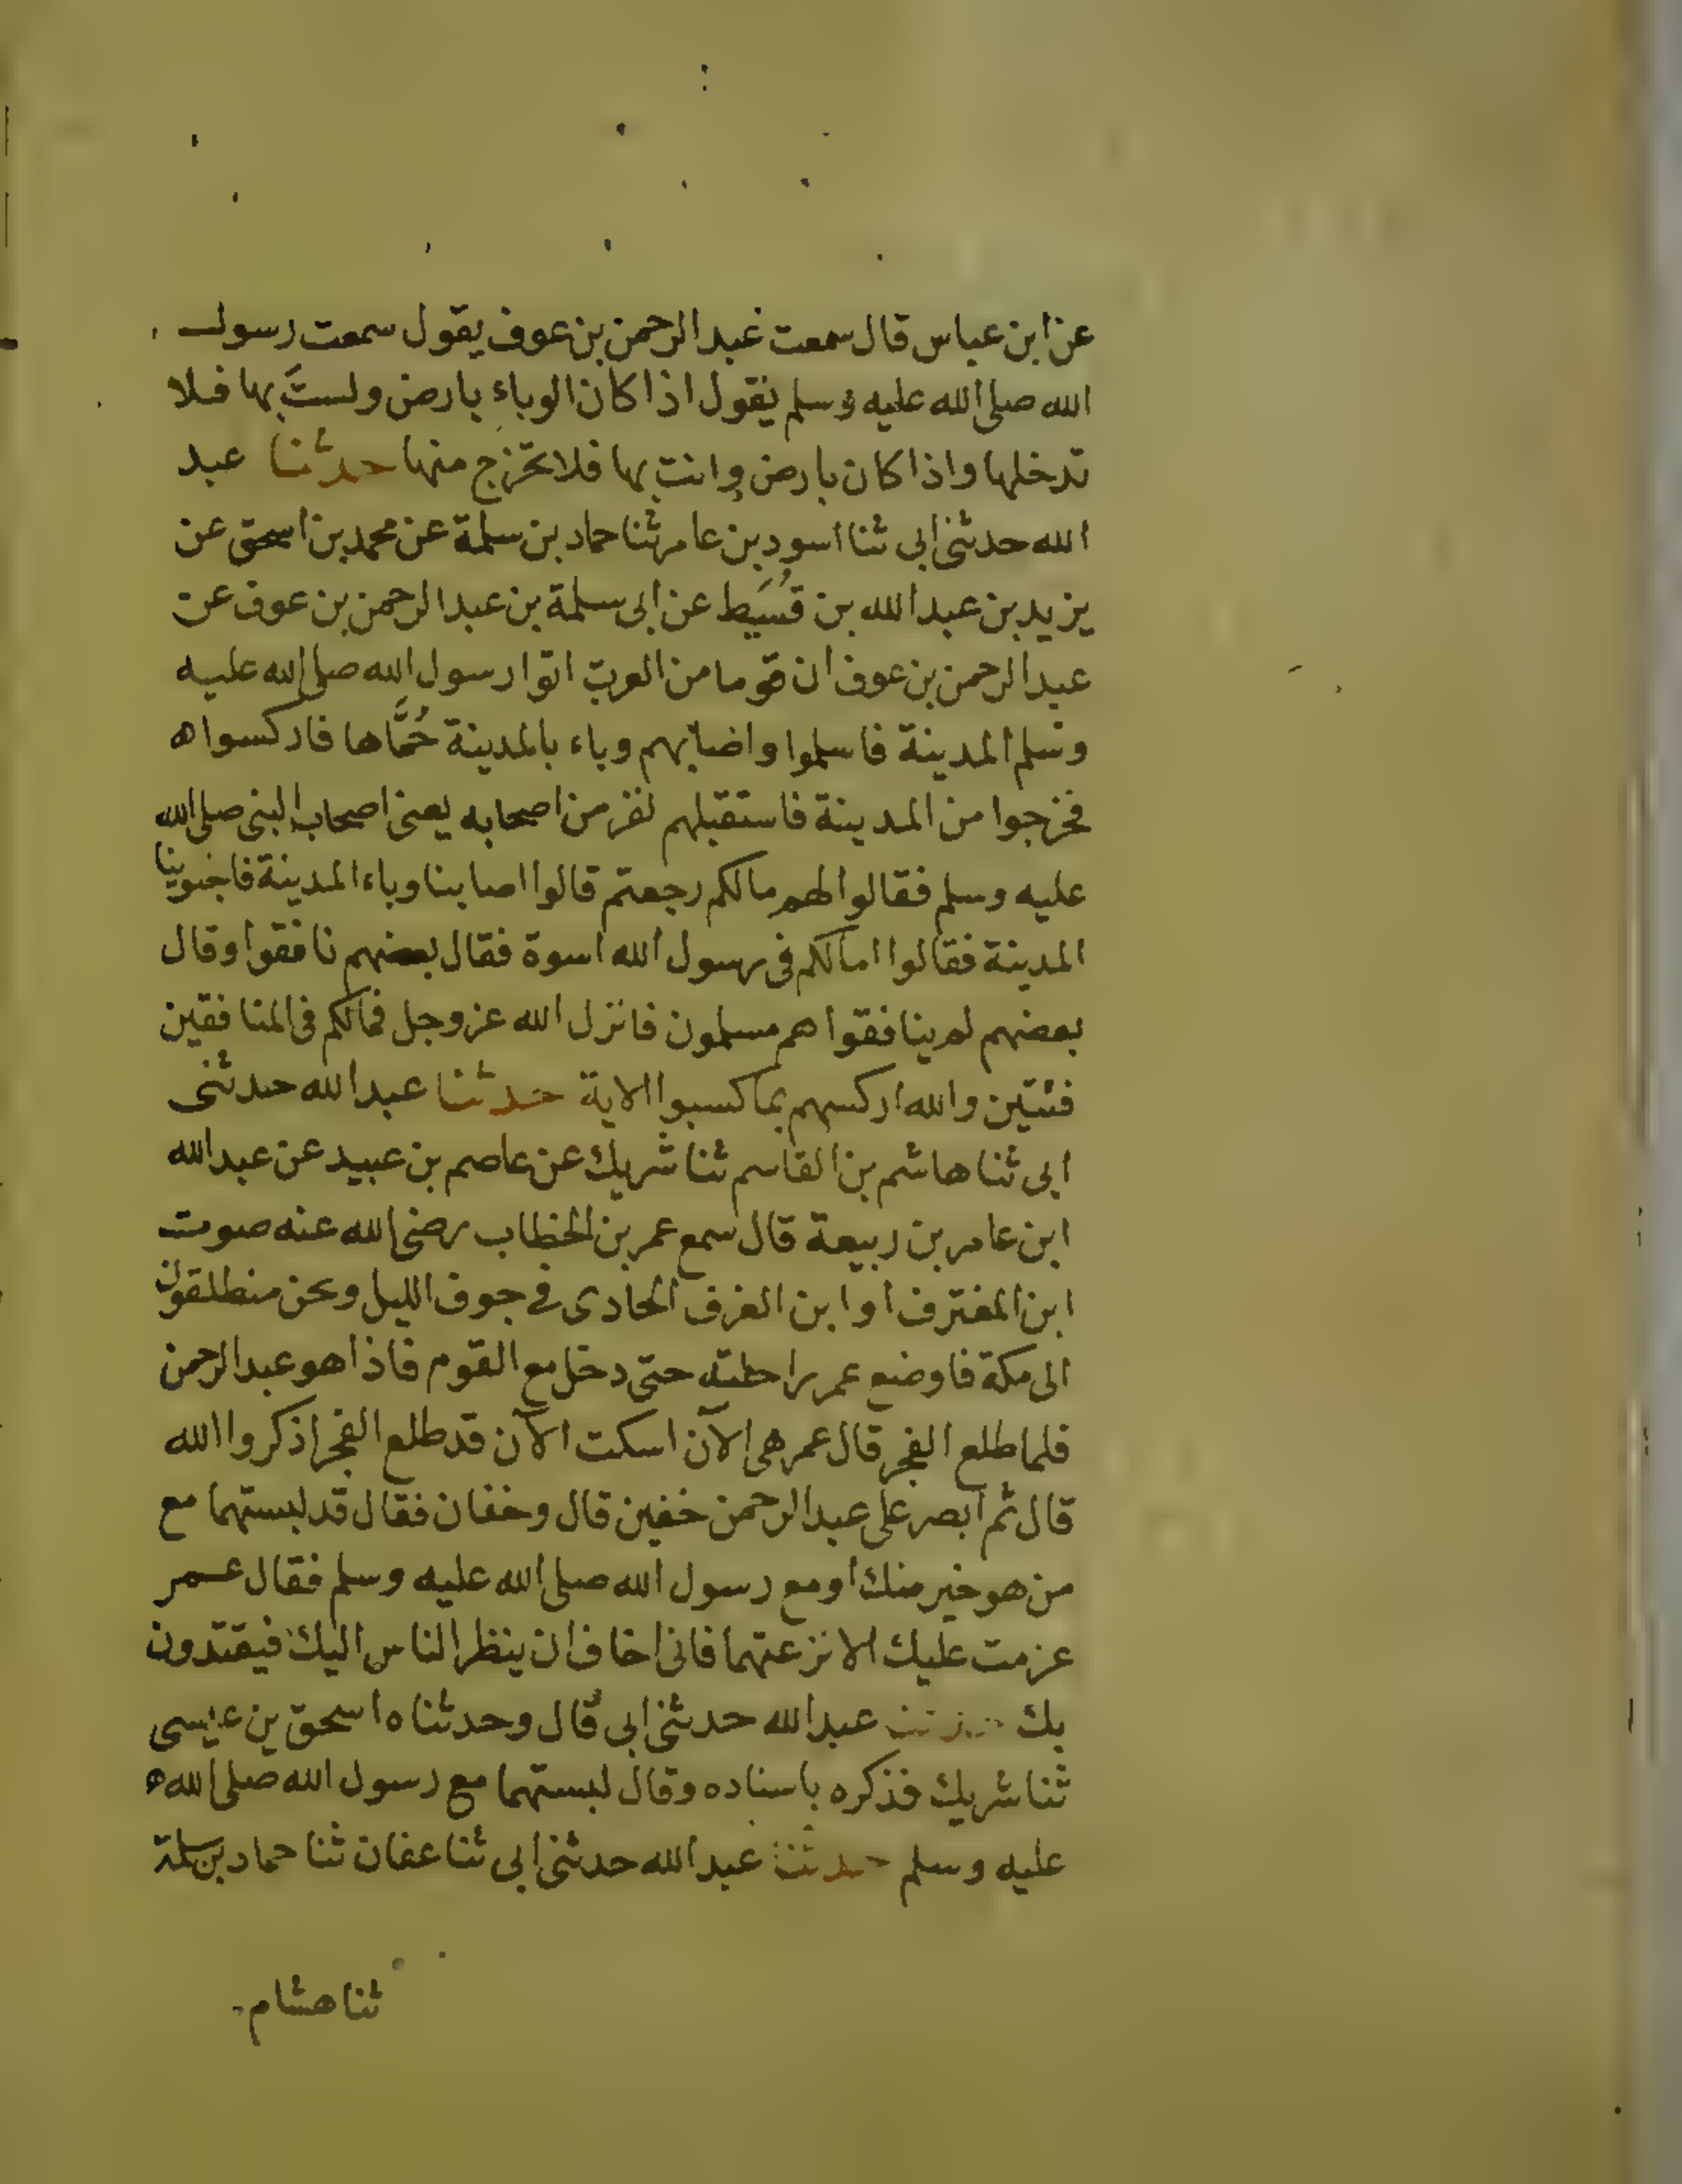 عن ابن عباس قال سمعت عبد الرحمن بن عوف يقول سمعت رسول
الله صلى الله عليه وسلم يقول اذا كان الوباء بارض ولستَ بها فلا
تدخلها واذا كان بارض وانت بها فلا تخرج منها حدثنا عبد
الله حدثنى ابى ثنا اسود بن عامر ثنا حماد بن سلمة عن محمد بن اسحق عن
يزيد بن عبد الله بن قُسَيط عن ابى سلمة بن عبد الرحمن بن عوف عن
عبد الرحمن بن عوف ان قوما من العرب اتوا رسول الله صلى الله عليه
وسلم المدينة فاسلموا واصابهم وباء بالمدينة حُمَّاها فاركسوا ه
فخرجوا من المدينة فاستقبلهم نفر من اصحابه يعنى اصحاب النبى صلى الله
عليه وسلم فقالوا لهم مالكم رجعتم قالوا اصابنا وباء المدينة فاجتوينا
المدينة فقالوا امالكم فى رسول الله اسوة فقال بعضهم نافقوا وقال
بعضهم لم ينافقوا هم مسلمون فانزل الله عز وجل فمالكم فى المنافقين
فئتين والله اركسهم بما كسبوا الاية حدثنا عبد الله حدثنى
ابى ثنا هاشم بن القاسم ثنا شريك عن عاصم بن عبيد عن عبد الله
ابن عامر بن ربيعة قال سمع عمر بن الخطاب رضى الله عنه صوت
ابن المغترف او ابن الغرف الحادى في جوف الليل ونحن منطلقون
الى مكة فاوضع عمر راحلته حتى دخل مع القوم فاذا هو عبد الرحمن
فلما طلع الفجر قال عمر هى الآن اسكت الآن قد طلع الفجر اذكروا الله
قال ثم ابصر على عبد الرحمن خفين قال وخفان فقال قد لبستهما مع
من هو خير منك او مع رسول الله صلى الله عليه وسلم فقال عمر
عزمت عليك الا نزعتهما فانى اخاف ان ينظر الناس اليك فيقتدون
بك حدثنا عبد الله حدثنى ابى قال وحدثناه اسحق بن عيسى
ثنا شريك فذكره باسناده وقال لبستهما مع رسول الله صلى الله ه
عليه وسلم حدثنا عبد الله حدثنى ابى ثنا عفان ثنا حماد بن سلمة
ثنا هشام